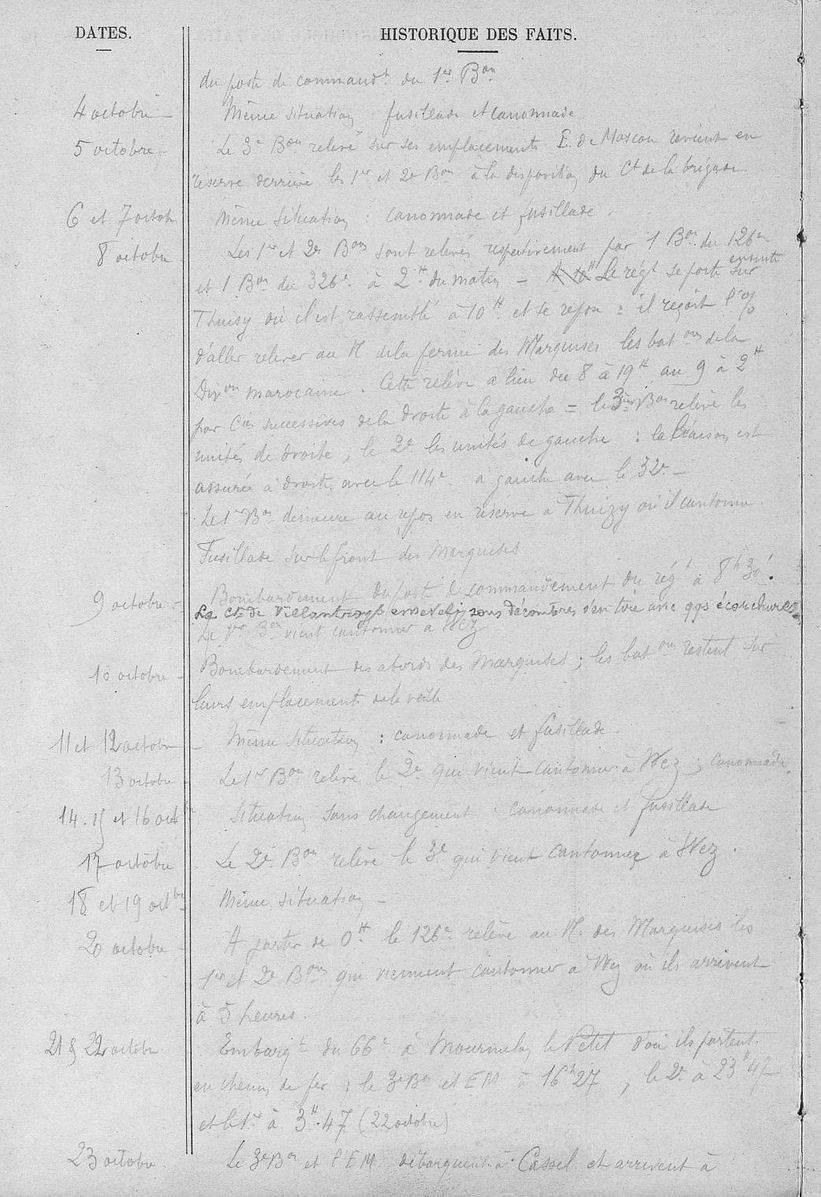 DATES.
HISTORIQUE DES FAITS.
du poste de command.t du 1er Bon
4 octobre — Même situation, fusillade et canonnade
5 octobre. — Le 3e Bon relevé sur ses emplacements E. de Moscou revient en
réserve derrière les 1er et 2e Bon à la disposition du Ct de la brigade
6 et 7 octob Même situation : canonnade et fusillade.
8 octobre Les 1er et 2e Bons sont relevés respectivement par 1 Bon du 126e
et 1 Bon du 326e à 2H du matin — Le régt se porte ensuite sur
Thuisy où il est rassemblé à 10H et se repose : il reçoit l'o/
d'aller relever au N. de la ferme des Marquises les bat ons de la
Divon marocaine. Cette relève a lieu du 8 à 19H au 9 à 2H
par Cies successives de la droite à la gauche = le 3e Bon relève les
unités de droite, le 2e les unités de gauche : la liaison est
assurée à droite avec le 114e à gauche avec le 32e —
Le 1er Bon demeure au repos en réserve à Thuizy où il cantonne
Fusillade sur le front des Marquises
9 octobre — Bombardement du poste de commandement du régt à 8h30 !
Le Ct de Villantroys enseveli sous décombres s'en tire avec qqs écorchures
Le 1er Bon vient cantonner à Wez
10 octobre — Bombardement des abords des Marquises ; les bat ons restent sur
leurs emplacements de la veille
11 et 12 octobre — Même situation : canonnade et fusillade.
13 octobre — Le 1er Bon relève le 2e qui vient cantonner à Wez ; canonnade.
14. 15 et 16 octbre Situation sans changement : canonnade et fusillade
17 octobre — Le 2e Bon relève le 3e qui vient cantonner à Wez.
18 et 19 octbre Même situation —
20 octobre — A partir de 0H le 126e relève au N. des Marquises les
1er et 2e Bons qui viennent cantonner à Wez où ils arrivent
à 5 heures.
21 & 22 octobre Embarqt du 66e à Mourmelon le Petit d'où ils partent
en chemin de fer : le 3e Bon et EM à 16h27, le 2e à 23H47
et le 1er à 3H.47 (22 octobre)
23 octobre. Le 3e Bon et l'EM débarquent à Cassel et arrivent à